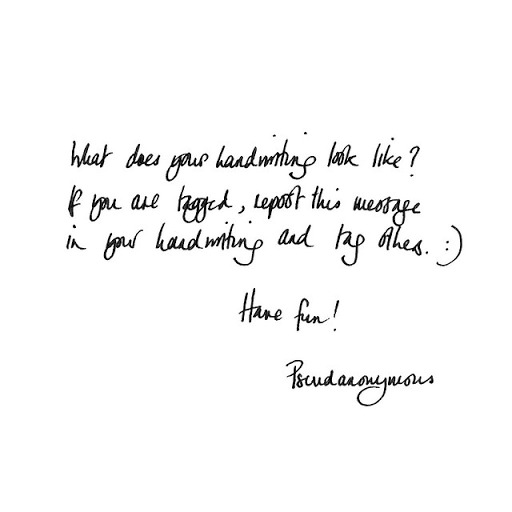 What does your handwriting look like?
If you are tagged, repost this message
in your handwriting and tag others. :)
Have fun!
Pseudanonymous